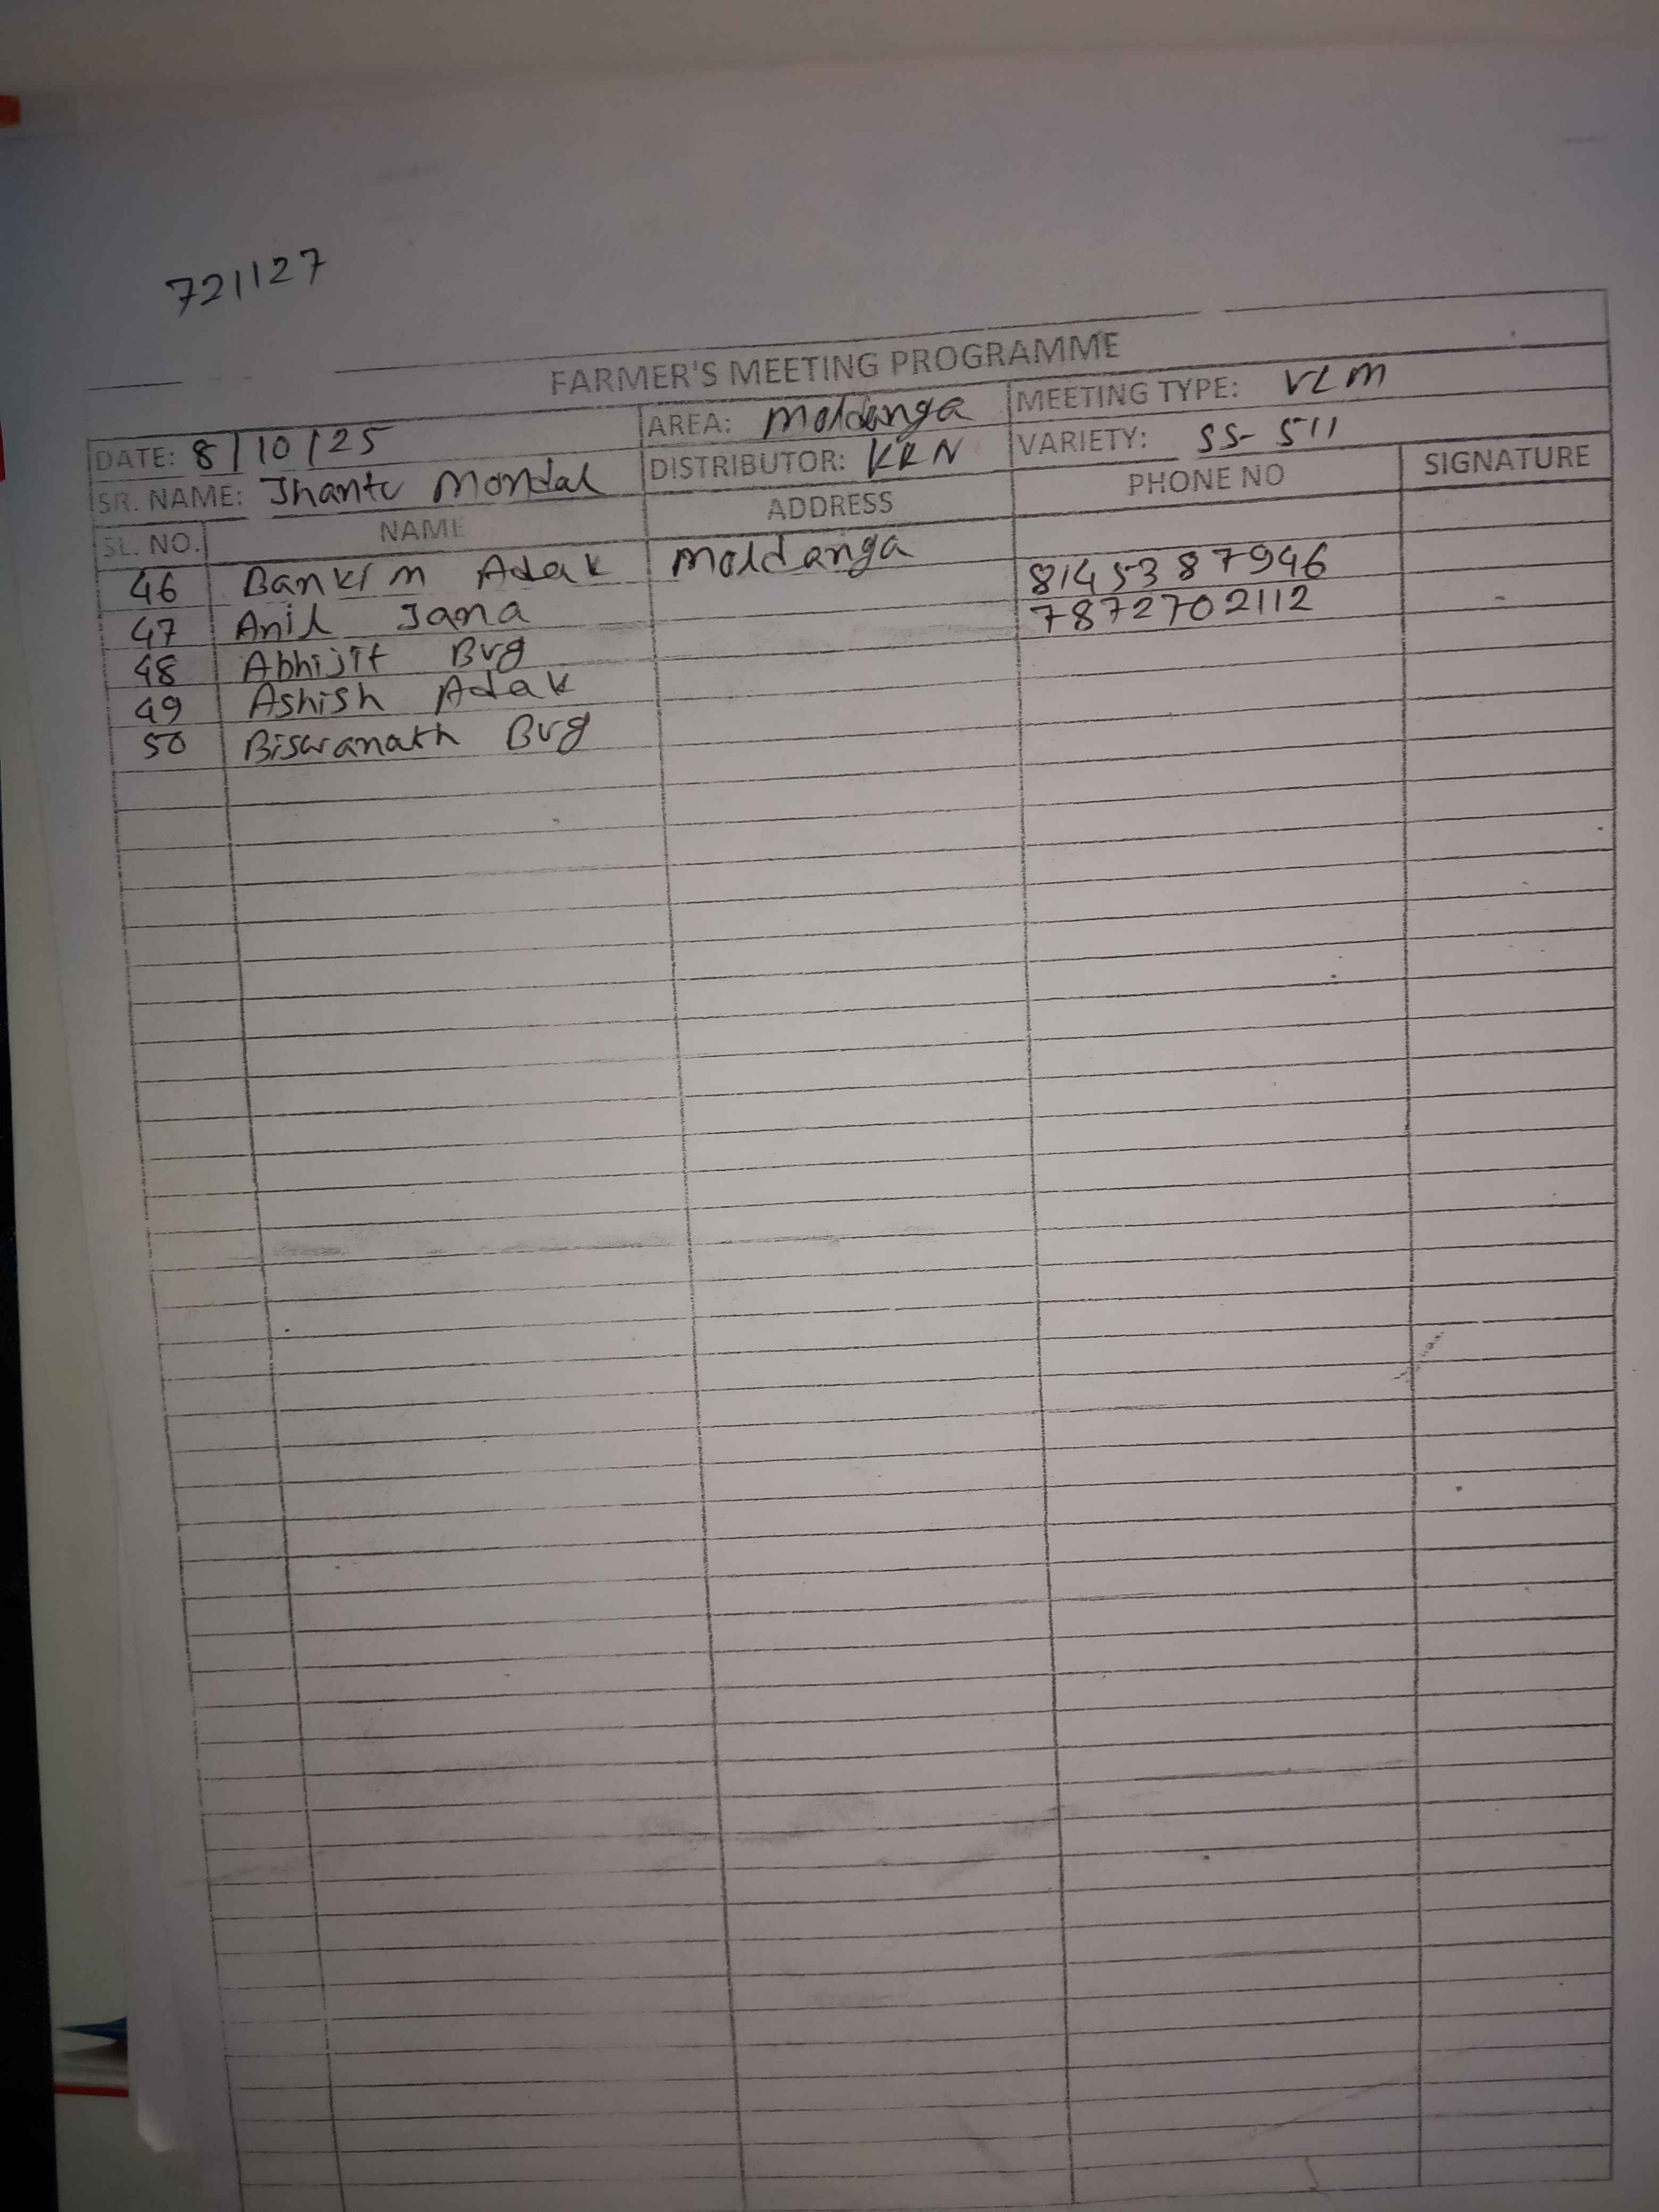 721127
FARMER'S MEETING PROGRAMME
DATE: 8/10/25 AREA: Moldanga MEETING TYPE: VLM
SR. NAME: Jhantu Mondal DISTRIBUTOR: KRN VARIETY: SS-511
SL. NO. NAME ADDRESS PHONE NO SIGNATURE
46 Bankim Adak Moldanga
47 Anil Jana 8145387946
48 Abhijit Bug 7872702112
49 Ashish Adak
50 Biswanath Bug